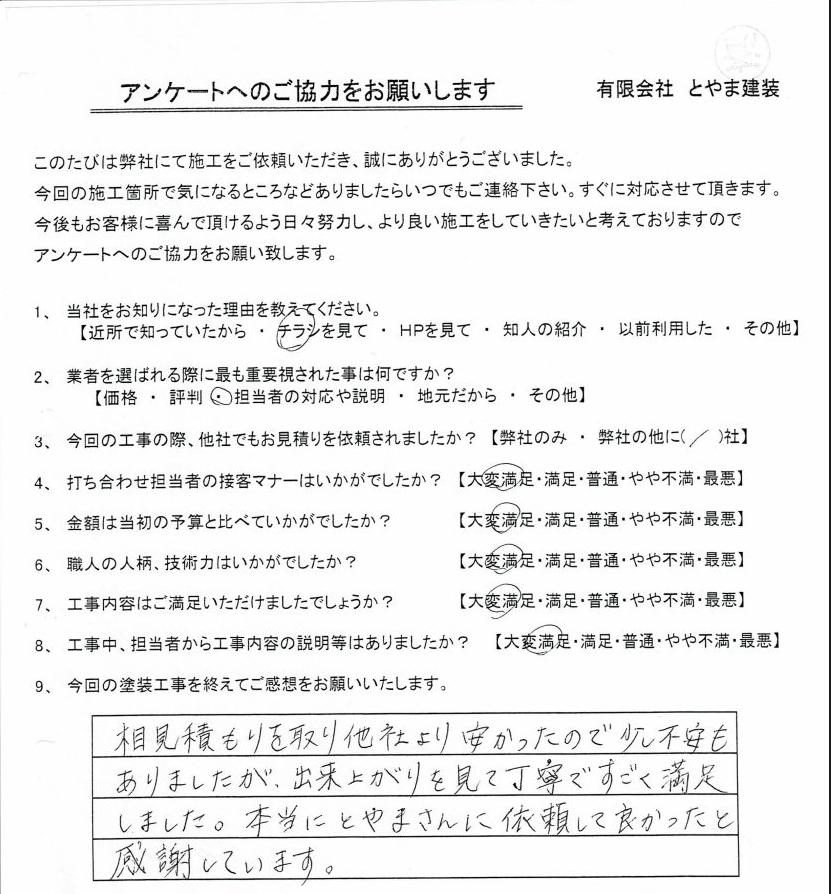 アンケートへのご協力をお願いします　有限会社　とやま建装
このたびは弊社にて施工をご依頼いただき、誠にありがとうございました。
今回の施工箇所で気になるところなどありましたらいつでもご連絡下さい。すぐに対応させて頂きます。
今後もお客様に喜んで頂けるよう日々努力し、より良い施工をしていきたいと考えておりますので
アンケートへのご協力をお願い致します。
1、 当社をお知りになった理由を教えてください。
【近所で知っていたから ・ チラシを見て ・ HPを見て ・ 知人の紹介 ・ 以前利用した ・ その他】
2、 業者を選ばれる際に最も重要視された事は何ですか？
【価格 ・ 評判 ・ 担当者の対応や説明 ・ 地元だから ・ その他】
3、 今回の工事の際、他社でもお見積りを依頼されましたか？ 【弊社のみ ・ 弊社の他に( / )社】
4、 打ち合わせ担当者の接客マナーはいかがでしたか？ 【大変満足・満足・普通・やや不満・最悪】
5、 金額は当初の予算と比べていかがでしたか？ 【大変満足・満足・普通・やや不満・最悪】
6、 職人の人柄、技術力はいかがでしたか？ 【大変満足・満足・普通・やや不満・最悪】
7、 工事内容はご満足いただけましたでしょうか？ 【大変満足・満足・普通・やや不満・最悪】
8、 工事中、担当者から工事内容の説明等はありましたか？ 【大変満足・満足・普通・やや不満・最悪】
9、 今回の塗装工事を終えてご感想をお願いいたします。
相見積もりを取り他社より安かったので少し不安も
ありましたが、出来上がりを見て丁寧ですごく満足
しました。本当にとやまさんに依頼して良かったと
感謝しています。